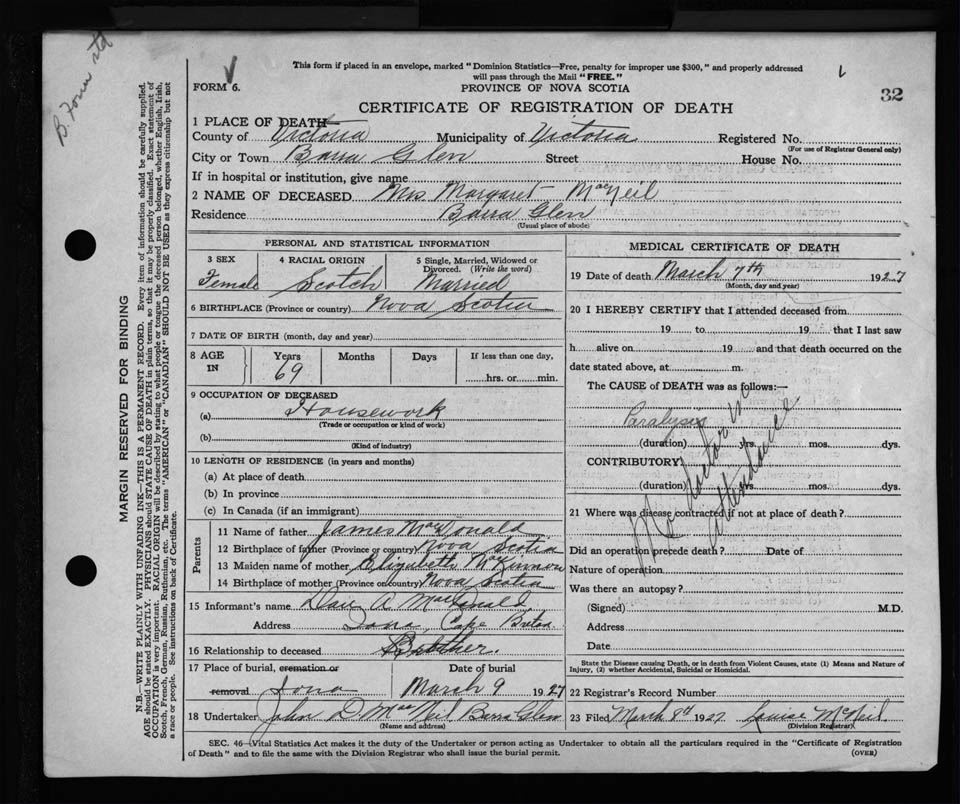 B. Form
This form if placed in an envelope, marked "Dominion Statistics—Free, penalty for improper use $300," and properly addressed
will pass through the Mail "FREE."
FORM 6.
PROVINCE OF NOVA SCOTIA
32
CERTIFICATE OF REGISTRATION OF DEATH
1 PLACE OF DEATH
County of Victoria Municipality of Victoria Registered No.
(For use of Registrar General only)
City or Town Barra Glen Street House No.
If in hospital or institution, give name
2 NAME OF DECEASED Mrs Margaret MacNeil
Residence Barra Glen
(Usual place of abode)
PERSONAL AND STATISTICAL INFORMATION
3 SEX 4 RACIAL ORIGIN 5 Single, Married, Widowed or Divorced. (Write the word)
Female Scotch Married
6 BIRTHPLACE (Province or country) Nova Scotia
7 DATE OF BIRTH (month, day and year)
8 AGE IN Years Months Days If less than one day,
69 hrs. or min.
9 OCCUPATION OF DECEASED
(a) Housework
(Trade or occupation or kind of work)
(b)
(Kind of industry)
10 LENGTH OF RESIDENCE (in years and months)
(a) At place of death
(b) In province
(c) In Canada (if an immigrant)
Parents
11 Name of father James MacDonald
12 Birthplace of father (Province or country) Nova Scotia
13 Maiden name of mother Elizabeth McKinnon
14 Birthplace of mother (Province or country) Nova Scotia
15 Informant's name A. MacDonald
Address Iona, Cape Breton
16 Relationship to deceased Brother.
17 Place of burial, cremation or Date of burial
removal Iona March 9 1927
18 Undertaker John D. MacNeil Barra Glen
(Name and address)
MEDICAL CERTIFICATE OF DEATH
19 Date of death March 7th 1927
(Month, day and year)
20 I HEREBY CERTIFY that I attended deceased from
19 to 19 that I last saw
h alive on 19 and that death occurred on the
date stated above, at m.
The CAUSE of DEATH was as follows:—
Paralysis
(duration) yrs. mos. dys.
CONTRIBUTORY
(duration) yrs. mos. dys.
No Doctor in
attendance
21 Where was disease contracted if not at place of death?
Did an operation precede death? Date of
Nature of operation
Was there an autopsy?
(Signed) M.D.
Address
Date
State the Disease causing Death, or in death from Violent Causes, state (1) Means and Nature of
Injury, (2) whether Accidental, Suicidal or Homicidal.
22 Registrar's Record Number
23 Filed March 8th 1927 Louise McNeil
(Division Registrar)
SEC. 46—Vital Statistics Act makes it the duty of the Undertaker or person acting as Undertaker to obtain all the particulars required in the "Certificate of Registration
of Death" and to file the same with the Division Registrar who shall issue the burial permit. (OVER)
MARGIN RESERVED FOR BINDING
N.B.—WRITE PLAINLY WITH UNFADING INK—THIS IS A PERMANENT RECORD. Every item of information should be carefully supplied.
AGE should be stated EXACTLY. PHYSICIANS should STATE CAUSE OF DEATH in plain terms, so that it may be properly classified. Exact statement of
OCCUPATION is very important. RACIAL ORIGIN will be described by stating to what people or tongue the deceased person belonged, whether English, Irish,
Scotch, French, German, Russian, Ruthenian, etc. The terms "AMERICAN" or "CANADIAN" SHOULD NOT BE USED as they express citizenship but not
a race or people. See instructions on back of Certificate.